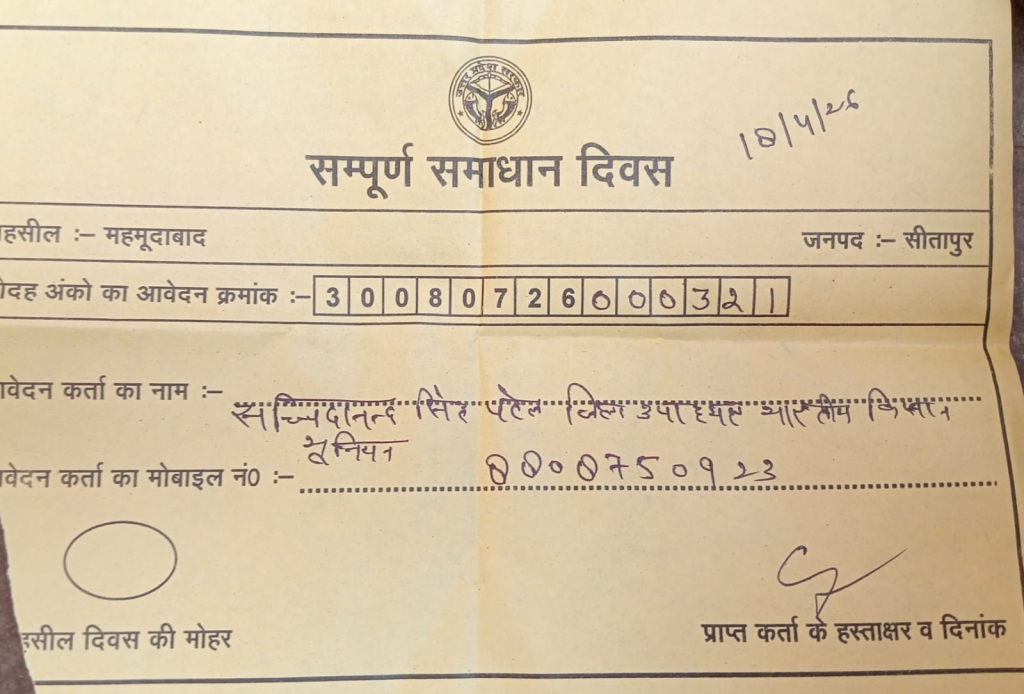 उत्तर प्रदेश सरकार
18/4/26
सम्पूर्ण समाधान दिवस
हसील :– महमूदाबाद जनपद :– सीतापुर
ोदह अंको का आवेदन क्रमांक :– 30080726000321
ावेदन कर्ता का नाम :– सच्चिदानन्द सिंह पटेल जिला उपाध्यक्ष भारतीय किसान
यूनियन
ावेदन कर्ता का मोबाइल नं0 :–
हसील दिवस की मोहर प्राप्त कर्ता के हस्ताक्षर व दिनांक